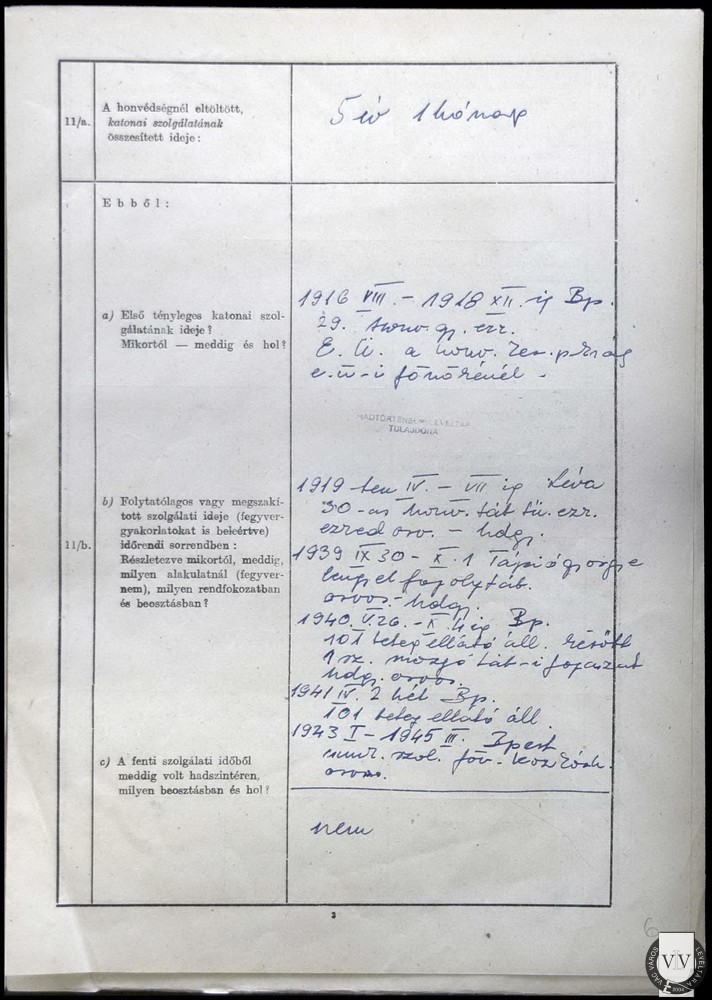 11/a.
A honvédségnél eltöltött,
katonai szolgálatának
összesített ideje:
5 év 1 hónap
Ebből:
a) Első tényleges katonai szol-
gálatának ideje?
Mikortól — meddig és hol?
1916 VIII. - 1918 XII. ig Bp.
29. honv. gy. ezr.
E. Ü. a honv.
e. ü-i főnökénél -
HADTÖRTÉNELMI LEVÉLTÁR
TULAJDONA
11/b.
b) Folytatólagos vagy megszakí-
tott szolgálati ideje (fegyver-
gyakorlatokat is beleértve)
időrendi sorrendben:
Részletezve mikortól, meddig,
milyen alakulatnál (fegyver-
nem), milyen rendfokozatban
és beosztásban?
1919-ben IV. - VII ig Léva
30-as honv. táb. tü. ezr.
ezred orv. - hdgy.
1939 IX 30 - X. 1 Tápiógyörgye
lengyel fogolytáb.
orvos. - hdgy.
1940. V. 26. - X. 4 ig Bp.
101 beteg ellátó áll. később
1 sz. mozgó táb-i fogászat
hdgy. orvos.
1941 IV. 2 hét Bp.
101 beteg ellátó áll.
1943 I - 1945 III. Bpest
szol. kórház.
orvos.
c) A fenti szolgálati időből
meddig volt hadszintéren,
milyen beosztásban és hol?
nem
3
6
VÁC VÁROS LEVÉLTÁRA
VVL
2004